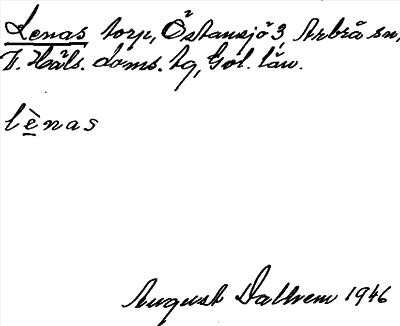 Lenas torp, Östansjö 3, Arbrå sn,
V. Häls. doms. tg, Gävl. län.
lènas
August Dallrem 1946